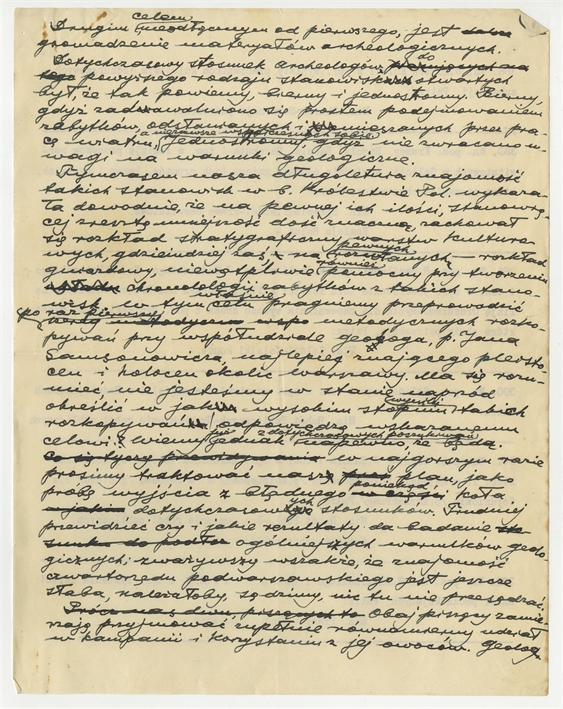 celem,
Drugim nieodłącznym od pierwszego, jest
gromadzenie materyałów archeologicznych.
Dotychczasowy stosunek archeologów do
powyższego rodzaju stanowisk otwartych
był, że tak powiemy, bierny i jednostronny. Bierny,
gdyż zadawalniano się prostem podejmowaniem
zabytków, odsłanianych i mieszanych przez pra-
a niezawsze współczesnych sobie
cę wiatru, jednostronny, gdyż nie zwracano u-
wagi na warunki geologiczne.
Tymczasem nasza długoletnia znajomość
takich stanowisk w b. Królestwie Pol. wykaza-
ła dowodnie, że na pewnej ich ilości, stanowią-
cej zresztą mniejszość dość znaczną, zachował
się rozkład stratygraficzny warstw kulturo-
wych, gdzieindziej zaś, na pewnych rozwianych – rozkład
również
gniazdowy, niewątpliwie pomocny przy tworzeniu
chronologii zabytków z takich stano-
wisk. W tym właśnie celu pragniemy przeprowadzić
po raz pierwszy
metodycznych rozko-
pywań przy współudziale geologa, p. Jana
Samsonowicza, najlepiej znającego pleisto-
cen i holocen okolic Warszawy. Ma się rozu-
mieć, nie jesteśmy w stanie naprzód
określić w jak wysokim stopniu wyniki takich
rozkopywań odpowiedzą wskazanemu
już z dotychczasowych poszukiwań
celowi. Wiemy jednak napewno, że będą.
W najgorszym razie
prosimy traktować nasz plan, jako
próbę wyjścia z błędnego poniekąd koła
dotychczasowych stosunków. Trudniej
przewidzieć czy i jakie rezultaty da badanie
ogólniejszych warunków geolo-
gicznych; zważywszy wszakże, że znajomość
czwartorzędu podwarszawskiego jest jeszcze
słaba, należałoby, sądzimy, nic tu nie przesądzać.
Obaj piszący zamie-
rzają przyjmować zupełnie równomierny udział
w kampanii i korzystaniu z jej owoców. Geolog